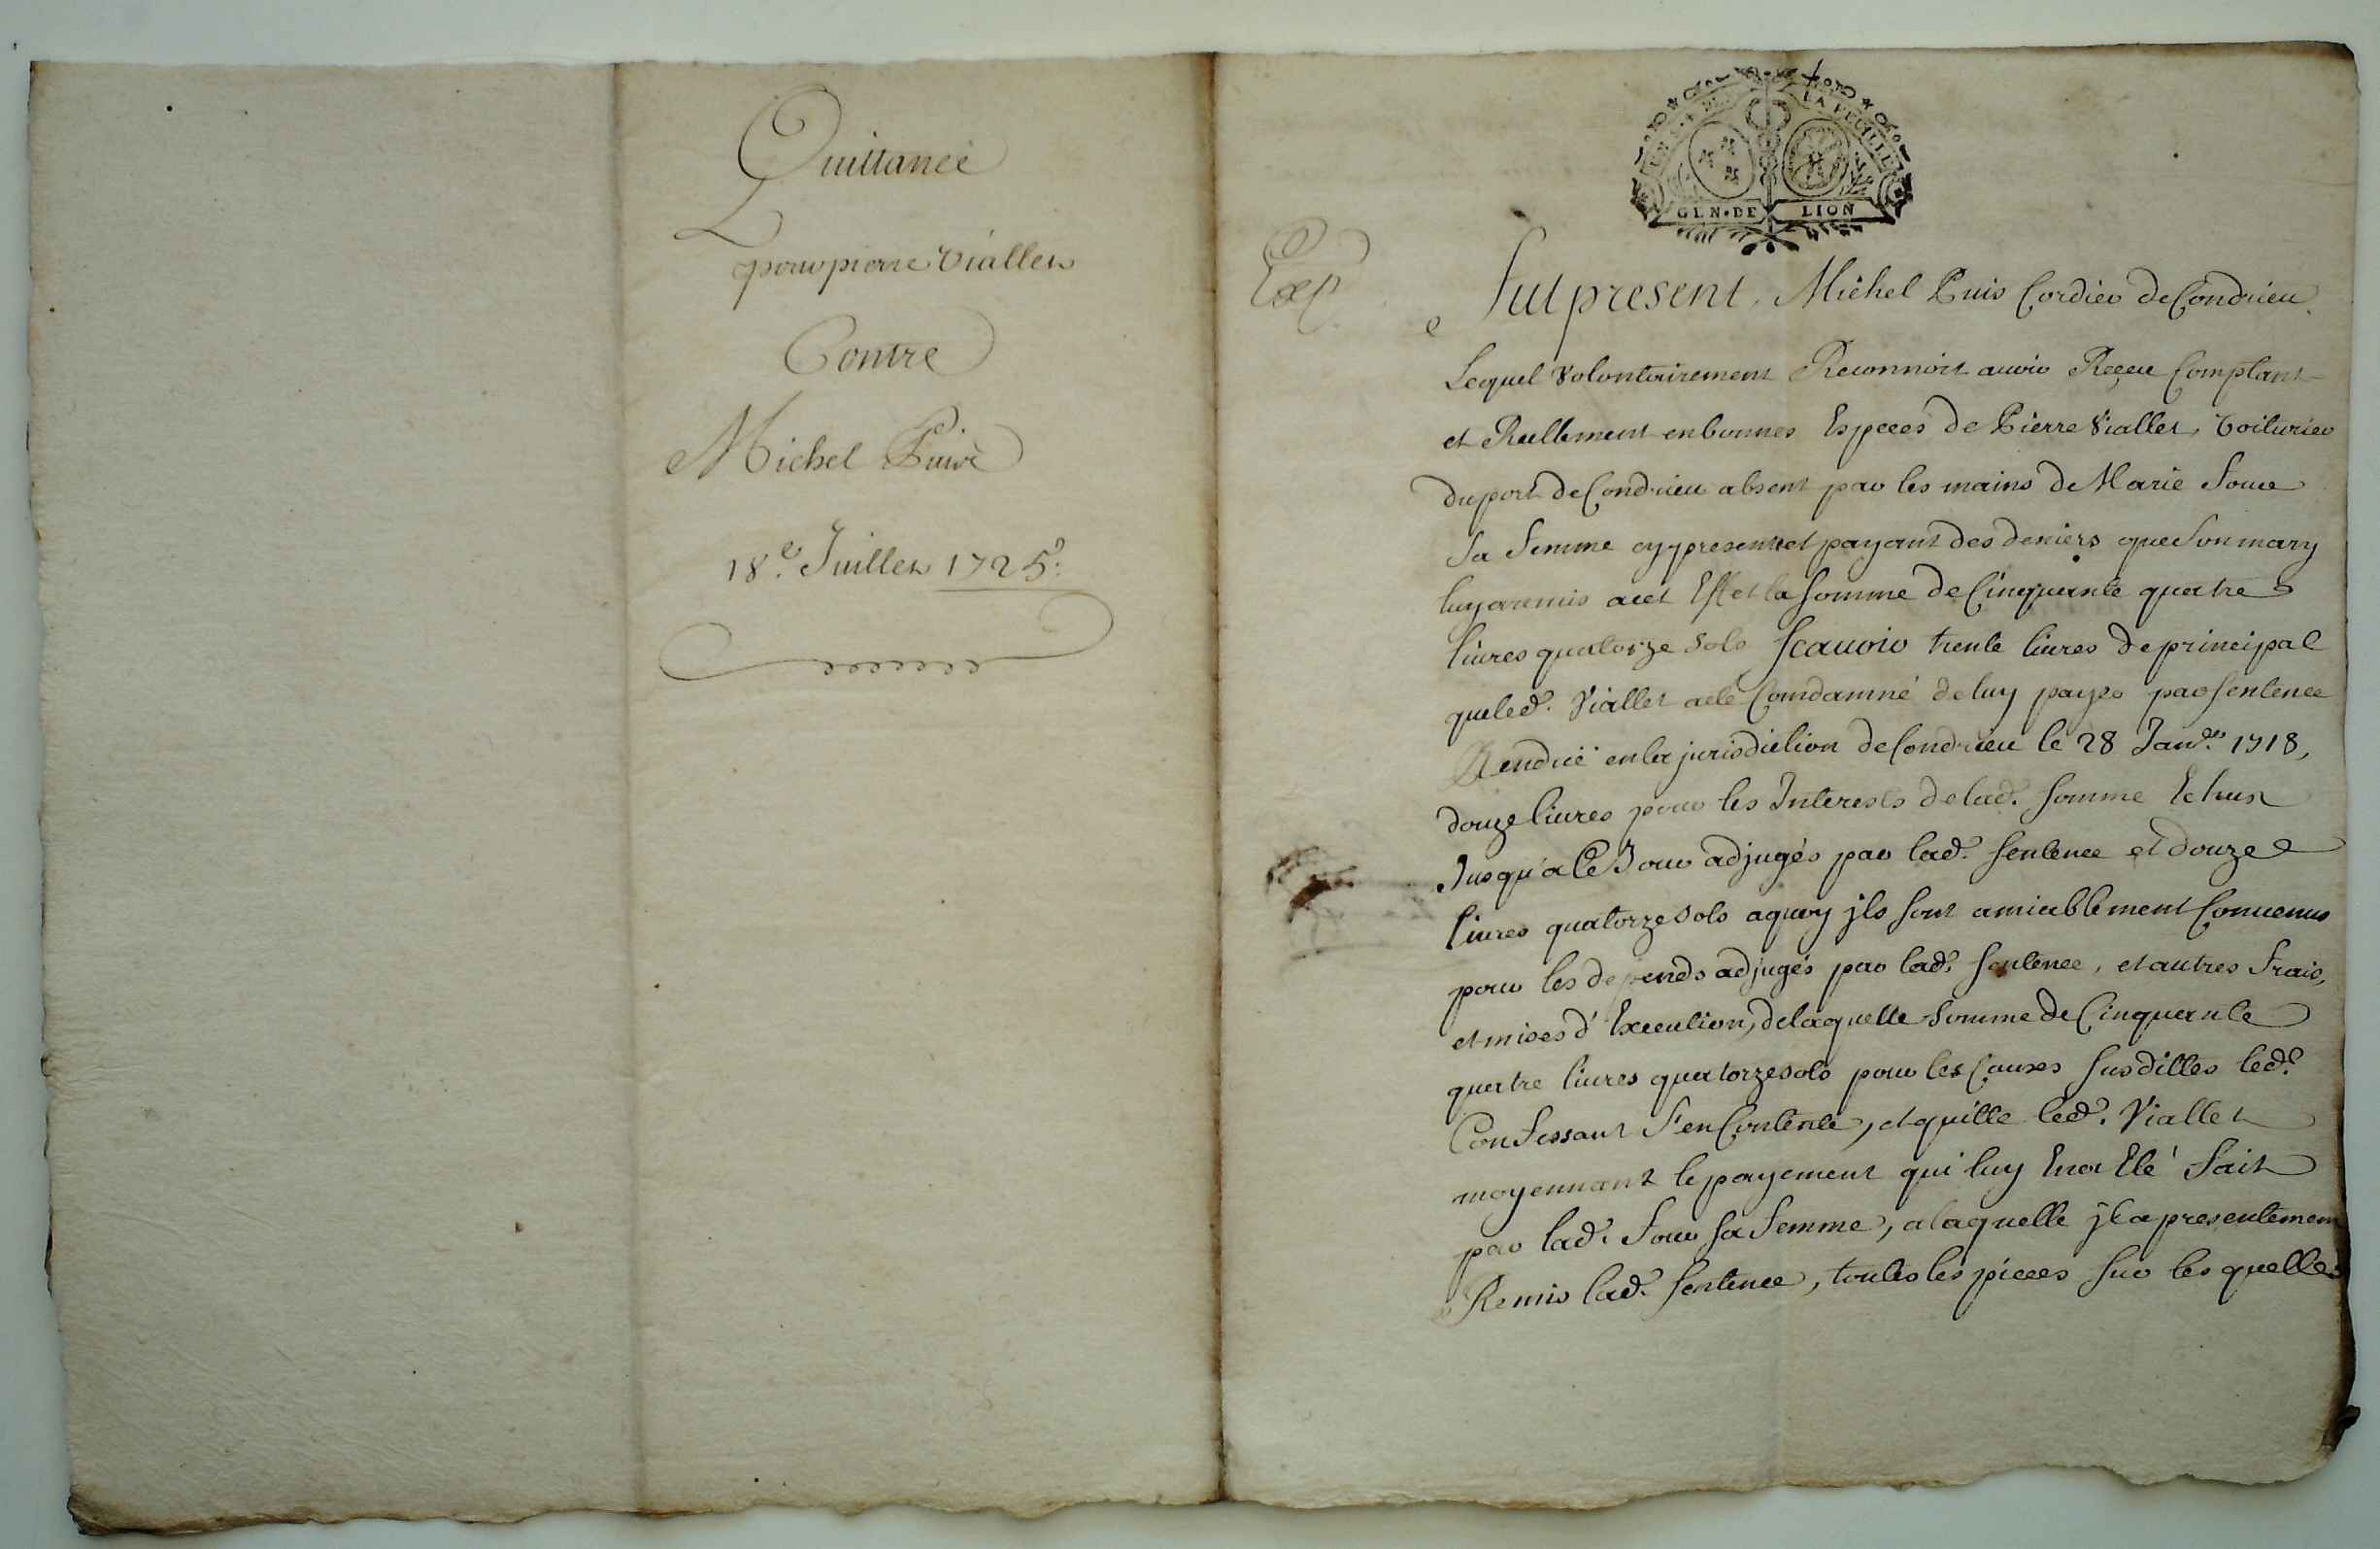 Quittance
pour pierre Viallet
Contre
Michel Puis
18e. Juillet 1725.
LA FEUILLE
GEN. DE LION
Exp
fut present, Michel Puis Cordier de Condrieu
Lequel volontairement Reconnoit auoir Reçeu Comptant
et Reellement en bonnes Especes de Pierre Viallet, Voiturier
du port de Condrieu absent par les mains de Marie
sa femme cy presente et payant des deniers que son mary
luy a remis a cet Effet la somme de Cinquante quatre
liures quatorze sols scauoir trente liures de principal
que led. Viallet a eté Condamné de luy payer par sentence
Renduë en la jurisdiction de Condrieu le 28 Janer. 1718,
douze liures pour les Interests de lad. somme Echus
Jusqu'a Ce Jour adjugés par lad. sentence et douze
liures quatorze sols a quoy jls sont amiablement Conuenus
pour les depends adjugés par lad. sentence, et autres frais,
et mises d'Execution, de laquelle somme de Cinquante
quatre liures quatorze sols pour les Causes susdittes led.
Confessant s'en Contente, et quitte led. Viallet
moyennant le payement qui luy En a Eté fait
par lad. sa femme, a laquelle jl a presentement
Remis lad. sentence, toutes les pieces sur les quelles